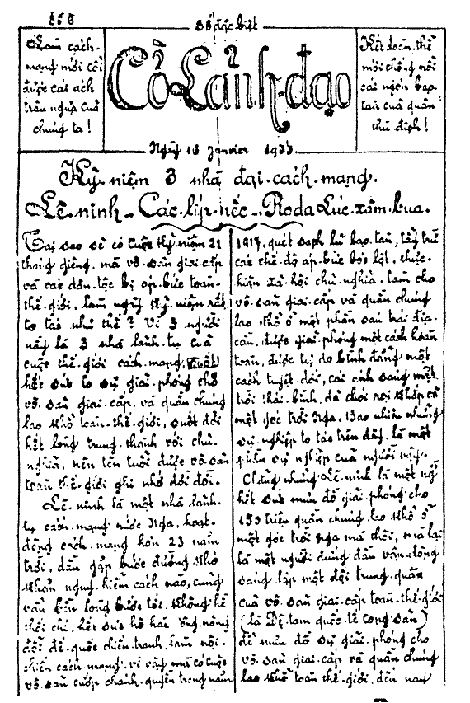 Số đặc biệt
Làm cách-
mạng mới cởi
được cái ách
trâu ngựa của
chúng ta!
Cờ-Lãnh-đạo
Kết đoàn thể
mới chống nổi
cái nạn bạo
tàn của quân
thù địch!
Ngày 16 Janvier 1933
Kỷ-niệm 3 nhà đại-cách-mạng.
Lê-ninh - Các-líp-nếc - Rôda Lúc-xăm-bua.
Tại sao lại có cuộc kỷ-niệm 21
tháng giêng, mà vô-sản giai cấp
và các dân-tộc bị áp-bức toàn-
thế-giới, làm ngày kỷ niệm rất
to tát như thế? Vì 3 người
này là 3 nhà lãnh-tụ của
cuộc thế-giới cách-mạng,
hết sức lo sự giải-phóng cho
vô-sản giai-cấp và quần chúng
lao khổ toàn-thế-giới, suốt đời
hết lòng trung-thành với chủ-
nghĩa, nên tên tuổi được vô-sản
toàn thế-giới ghi nhớ đời đời.
Lê-ninh là một nhà lãnh-
tụ cách-mạng nước Nga, hoạt-
động cách-mạng hơn 23 năm
trời, dầu gặp bước đường khó
khăn nguy-hiểm cách nào, cũng
vẫn bền lòng bước tới. Không hề
thối chí, hết sức hô hào ủng nông
đổi đế-quốc chiến-tranh làm nội-
chiến cách-mạng; vì vậy mà có cuộc
vô-sản cướp chánh-quyền trong năm
1917, quét sạch lũ bạo-tàn, lấy trừ
các chế-độ áp-bức bóc lột, thực-
hiện xã-hội chủ-nghĩa, làm cho
vô-sản giai-cấp và quần chúng
lao-khổ ở một phần sáu trái địa-
cầu, được giải-phóng một cách hoàn
toàn, được tự do bình đẳng một
cách tuyệt đối, cái ánh sáng mặt
trời thái-bình, đã chói rọi khắp cả
một góc trời Nga. Bao nhiêu những
sự nghiệp to tát trên đây, là một
phần sự nghiệp của người này.
Chẳng những Lê-ninh là một người
hết sức mưu đồ giải phóng cho
159 triệu quần chúng lao khổ ở
một góc trời Nga mà thôi, mà lại
là một người đứng đầu vận-động
sáng lập một đội trung-quân
của vô-sản giai-cấp toàn-thế-giới
(là Đệ tam quốc-tế cộng sản)
để mưu đồ sự giải-phóng cho
vô-sản giai-cấp và quần chúng
lao khổ toàn thế-giới, đến nay